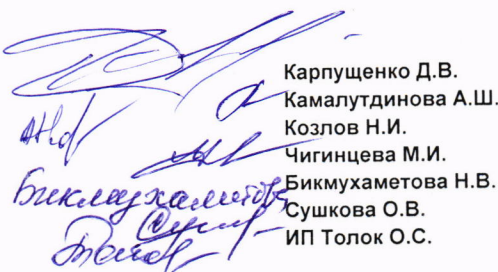 Карпущенко Д.В.
Камалутдинова А.Ш.
Козлов Н.И.
Чигинцева М.И.
Бикмухаметова Н.В.
Сушкова О.В.
ИП Толок О.С.